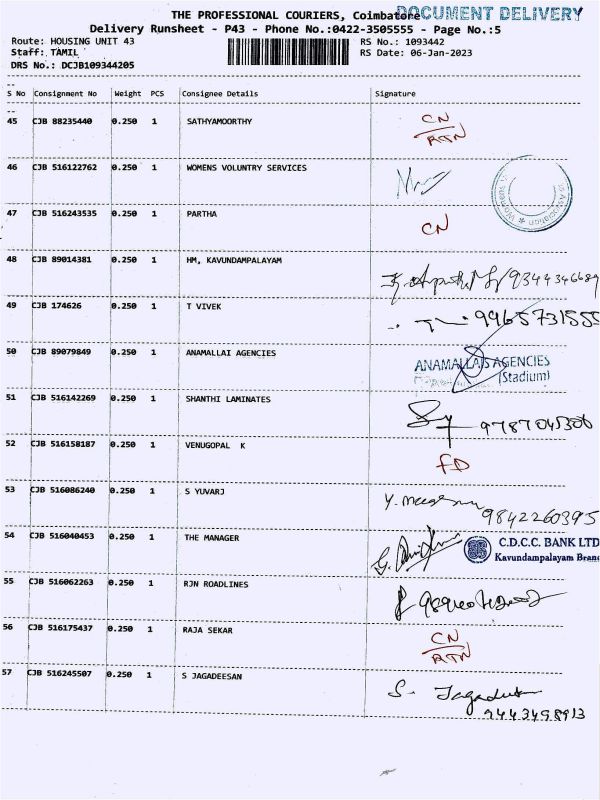 THE PROFESSIONAL COURIERS, Coimbatore
DOCUMENT DELIVERY
Delivery Runsheet - P43 - Phone No.:0422-3505555 - Page No.:5
Route: HOUSING UNIT 43 RS No.: 1093442
Staff: TAMIL RS Date: 06-Jan-2023
DRS No.: DCJB109344205
S No Consignment No Weight PCS Consignee Details Signature
45 CJB 88235440 0.250 1 SATHYAMOORTHY CN
RTN
46 CJB 516122762 0.250 1 WOMENS VOLUNTRY SERVICES
47 CJB 516243535 0.250 1 PARTHA CN
48 CJB 89014381 0.250 1 HM, KAVUNDAMPALAYAM 9344346689
49 CJB 174626 0.250 1 T VIVEK 9965731555
50 CJB 89079849 0.250 1 ANAMALLAI AGENCIES ANAMALLAIS AGENCIES
(Stadium)
51 CJB 516142269 0.250 1 SHANTHI LAMINATES 9787045306
52 CJB 516158187 0.250 1 VENUGOPAL K FD
53 CJB 516086240 0.250 1 S YUVARJ
9842260395
54 CJB 516040453 0.250 1 THE MANAGER C.D.C.C. BANK LTD
Kavundampalayam Bran
55 CJB 516062263 0.250 1 RJN ROADLINES
56 CJB 516175437 0.250 1 RAJA SEKAR CN
RTN
57 CJB 516245507 0.250 1 S JAGADEESAN S.
9443498913